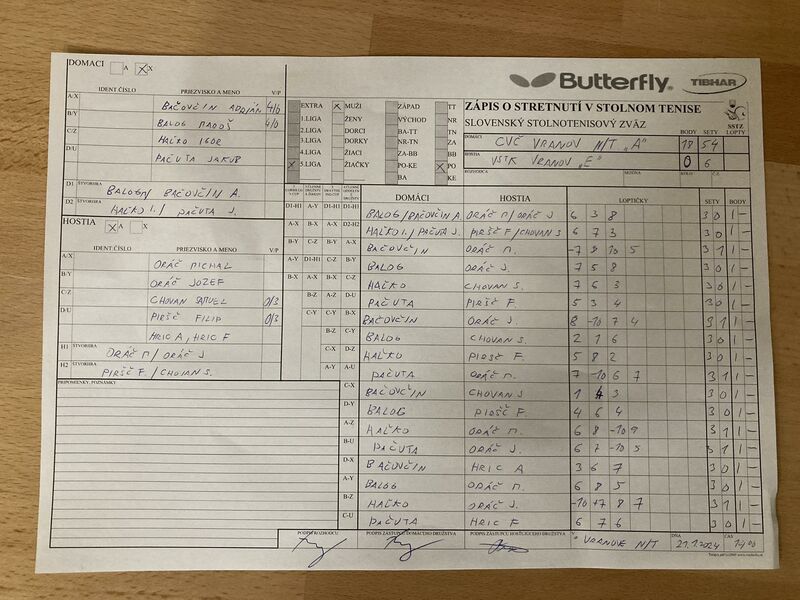 DOMACI A X
Butterfly TIBHAR
IDENT ČÍSLO PRIEZVISKO A MENO V/P
A/X BAČOVČIN ADRIÁN 4/0
B/Y BALOG MAROŠ 4/0
C/Z HAĽKO IGOR
D/U PAČUTA JAKUB
D1 ŠTVORHRA BALOG / BAČOVČIN A.
D2 HAĽKO I. / PAČUTA J.
HOSTIA A X
IDENT ČÍSLO PRIEZVISKO A MENO V/P
A/X ORÁČ MICHAL
B/Y ORÁČ JOZEF
C/Z CHOVAN SAMUEL 0/3
D/U PIRŠČ FILIP 0/3
HRIC A, HRIC F
H1 ŠTVORHRA ORÁČ M / ORÁČ J
H2 ŠTVORHRA PIRŠČ F. / CHOVAN S.
PRIPOMIENKY, POZNÁMKY
EXTRA MUŽI ZÁPAD TT
1.LIGA ŽENY VÝCHOD NR
2.LIGA DORCI BA-TT TN
3.LIGA DORKY NR-TN ZA
4.LIGA ŽIACI ZA-BB BB
5.LIGA ŽIAČKY PO-KE PO
BA KE
ZÁPIS O STRETNUTÍ V STOLNOM TENISE
SLOVENSKÝ STOLNOTENISOVÝ ZVÄZ
SSTZ
DOMÁCI CVČ VRANOV N/T "A" BODY 18 SETY 54 LOPTY
HOSTIA VSTK VRANOV "E" 0 6
ROZHODCA
DOMÁCI HOSTIA LOPTIČKY SETY BODY
D1-H1 BALOG / BAČOVČIN A. ORÁČ M / ORÁČ J 6 3 8 3 0 1 -
D2-H2 HAĽKO I. / PAČUTA J. PIRŠČ F / CHOVAN S 6 7 3 3 0 1 -
BAČOVČIN ORÁČ M. -7 8 10 5 3 1 1 -
BALOG ORÁČ J. 7 5 8 3 0 1 -
HAĽKO CHOVAN S. 7 6 3 3 0 1 -
D-U PAČUTA PIRŠČ F. 5 3 4 3 0 1 -
BAČOVČIN ORÁČ J. 8 -10 7 4 3 1 1 -
BALOG CHOVAN S. 2 1 6 3 0 1 -
D-Z HAĽKO PIRŠČ F. 5 8 2 3 0 1 -
A-U PAČUTA ORÁČ M. 7 -10 6 7 3 1 1 -
C-X BAČOVČIN CHOVAN S 1 4 3 3 0 1 -
D-Y BALOG PIRŠČ F. 4 6 4 3 0 1 -
A-Z HAĽKO ORÁČ M. 6 8 -10 9 3 1 1 -
B-U PAČUTA ORÁČ J. 6 7 -10 5 3 1 1 -
D-X BAČOVČIN HRIC A 3 6 7 3 0 1 -
A-Y BALOG ORÁČ M. 6 8 5 3 0 1 -
B-Z HAĽKO ORÁČ J. -10 +7 8 7 3 1 1 -
C-U PAČUTA HRIC F 6 7 6 3 0 1 -
PODPIS ROZHODCU PODPIS ZÁSTUPCU DOMÁCEHO DRUŽSTVA PODPIS ZÁSTUPCU HOSŤUJÚCEHO DRUŽSTVA V VRANOVE N/T DŇA 21.1.2024 ČAS